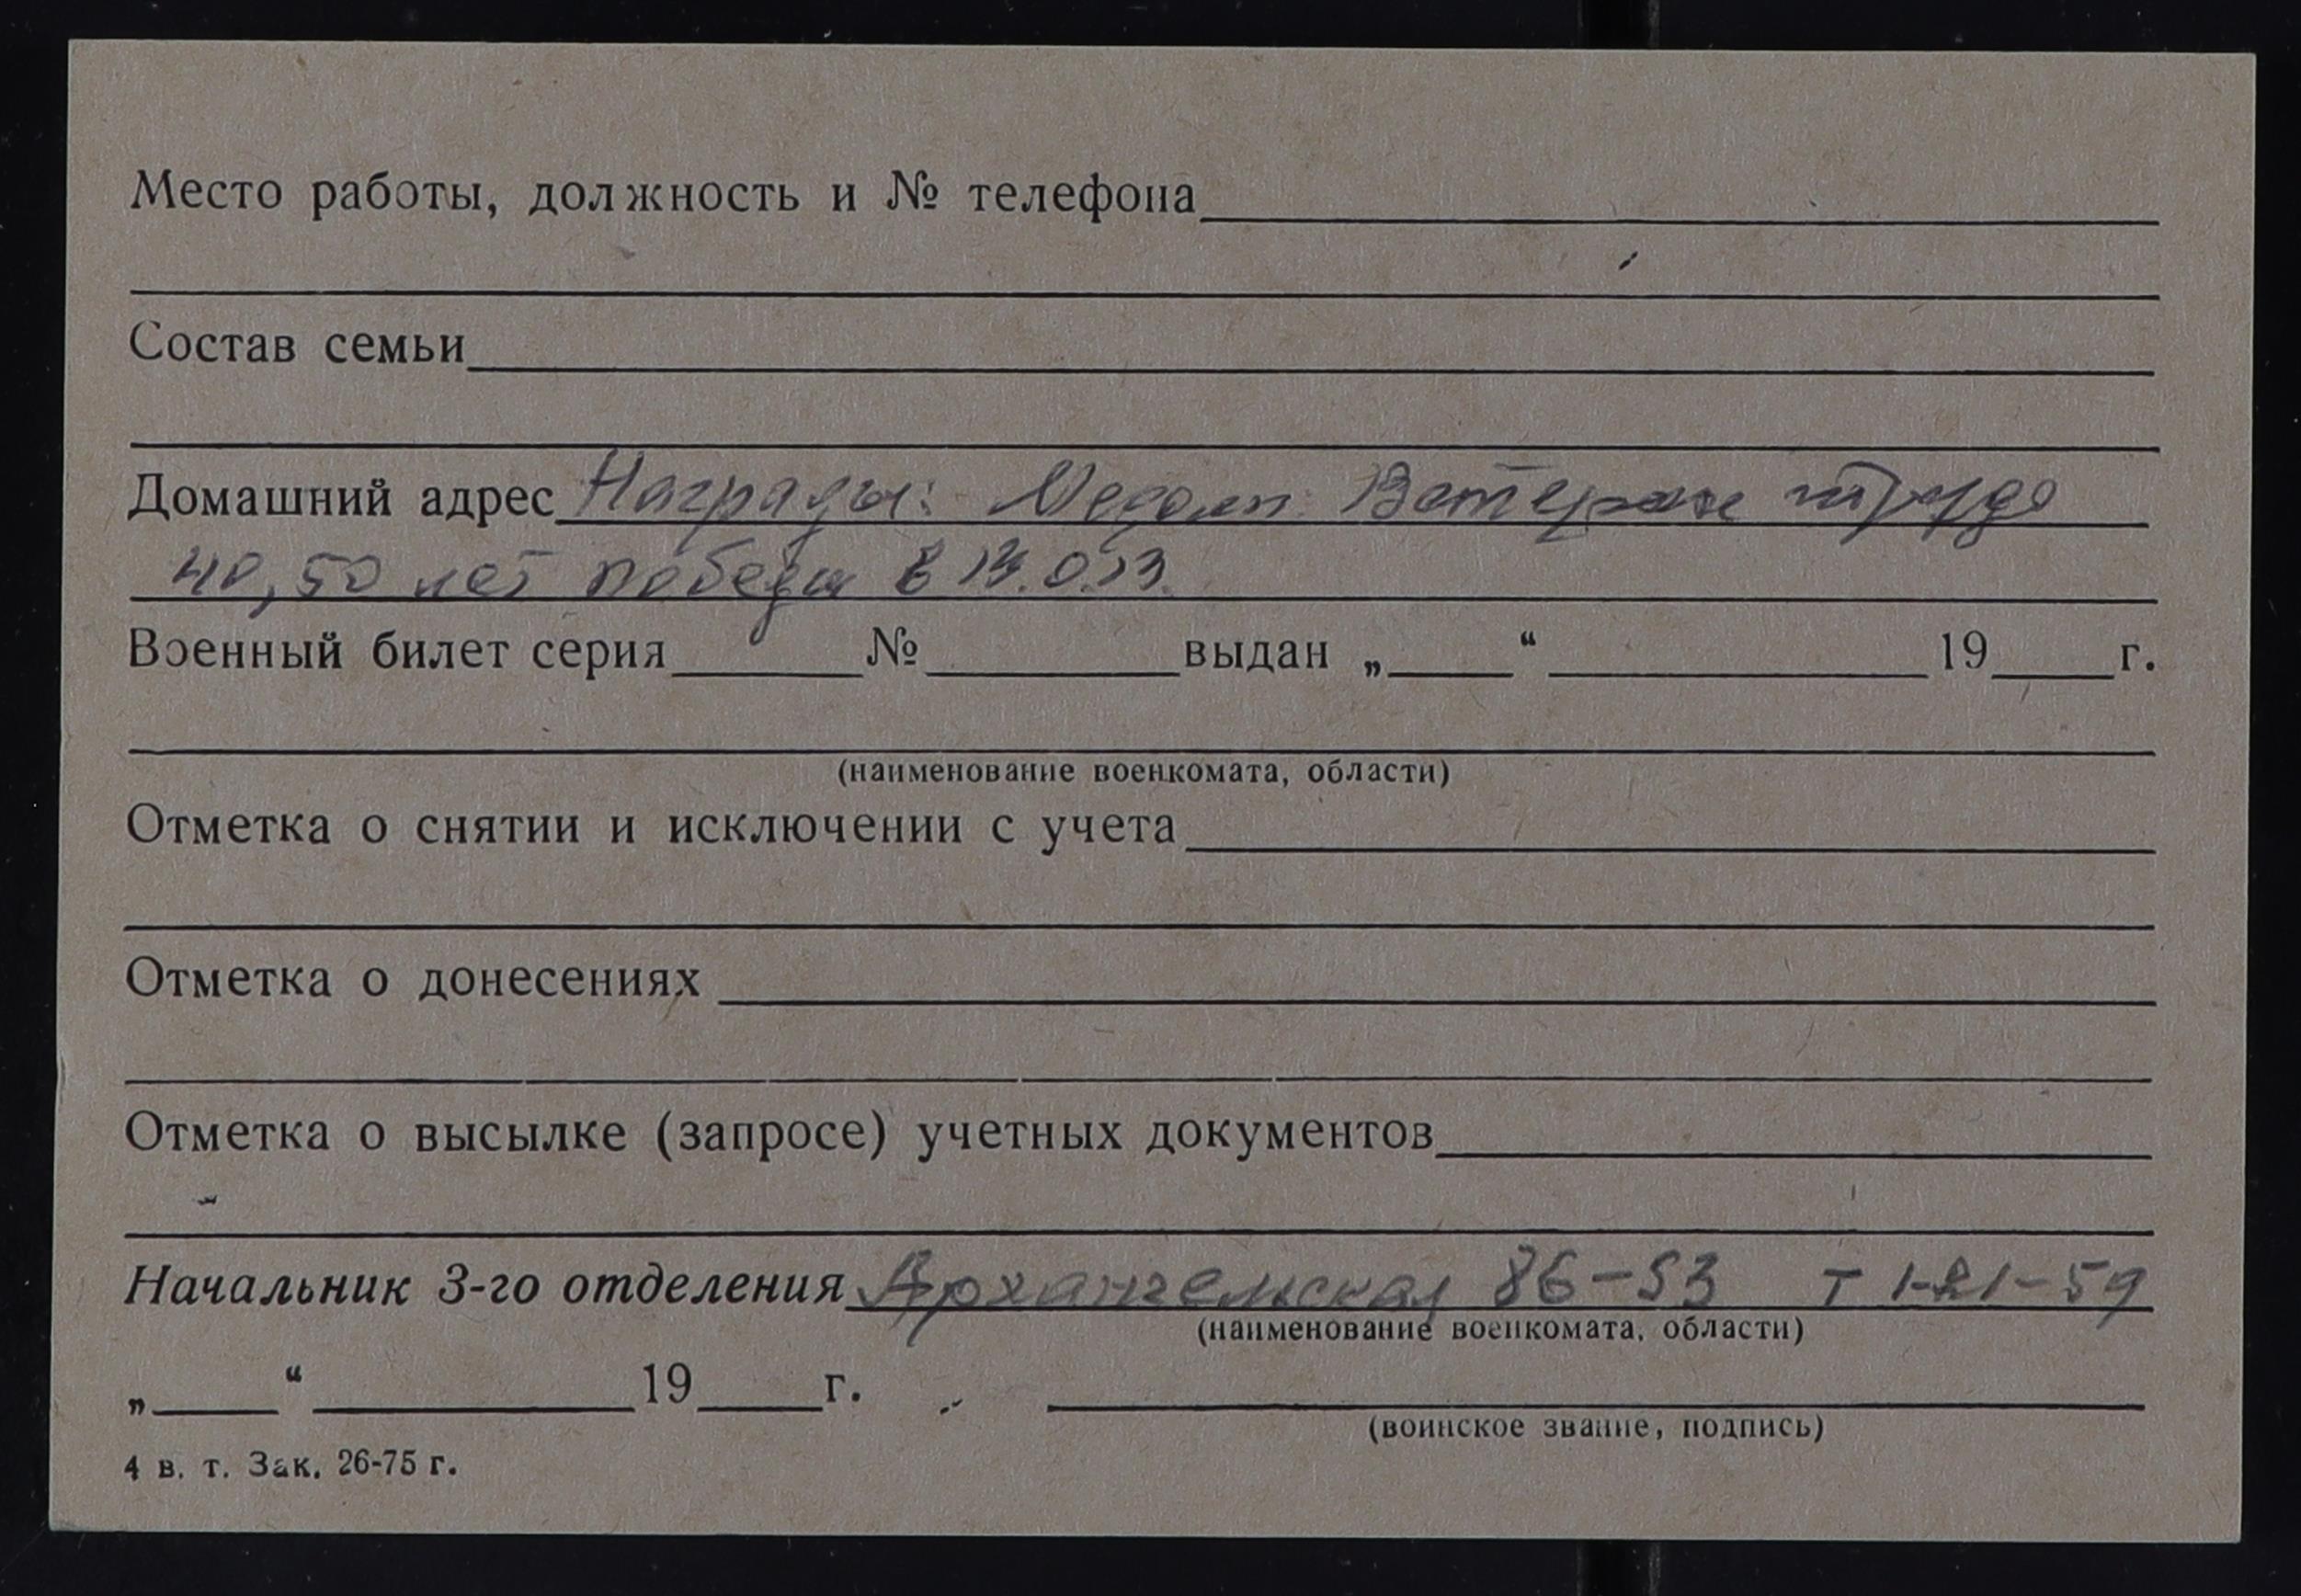 Место работы, должность и № телефона
Состав семьи
Домашний адрес Награды: Медали: Ветеран труда
40, 50 лет победы в В.О.В.
Военный билет серия № выдан „ “ 19 г.
(наименование военкомата, области)
Отметка о снятии и исключении с учета
Отметка о донесениях
Отметка о высылке (запросе) учетных документов
Начальник 3-го отделения Архангельская 86-53 т 1-21-59
(наименование военкомата, области)
„ “ 19 г.
(воинское звание, подпись)
4 в. т. Зак. 26-75 г.